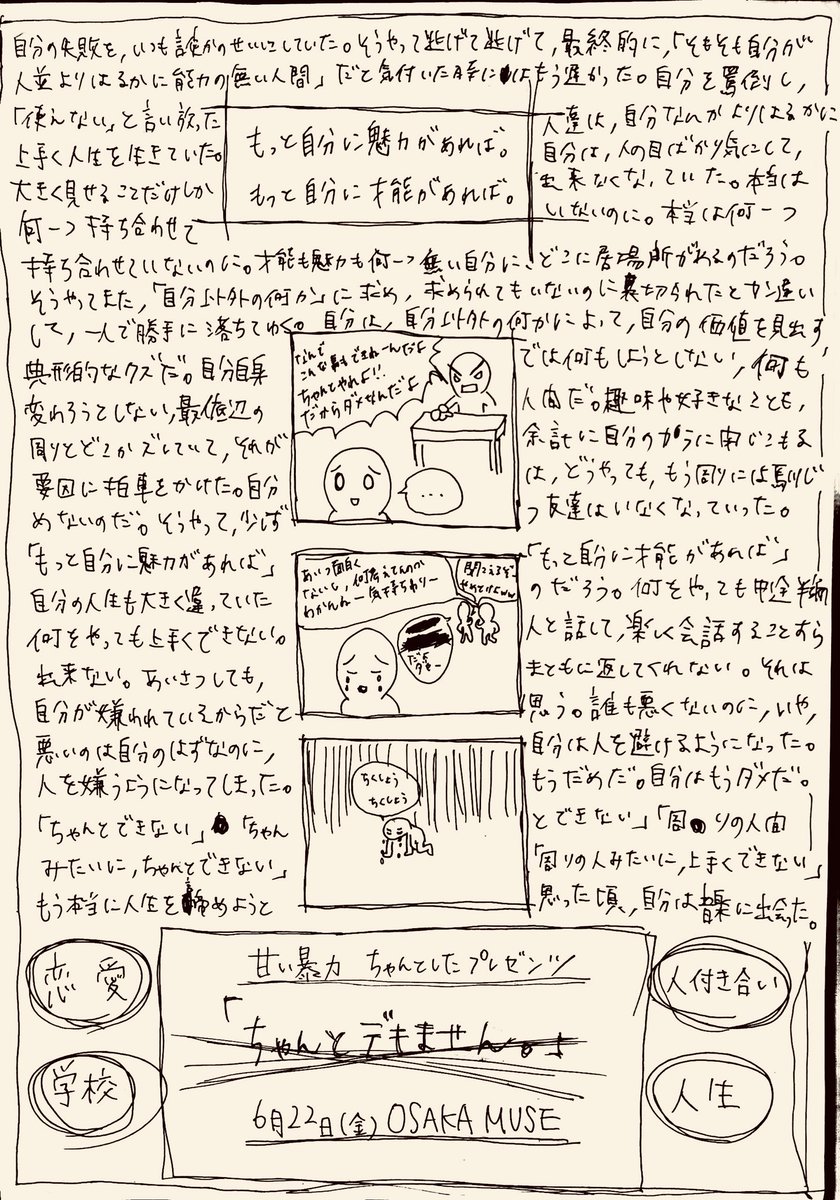 自分の失敗を、いつも誰かのせいにしていた。そうやって逃げて逃げて、最終的に、「そもそも自分が
人並よりはるかに能力の無い人間」だと気付いた時にはもう遅かった。自分を罵倒し、
「使えない」と言い放った 人達は、自分なんかよりはるかに
上手く人生を生きていた。 自分は、人の目ばかり気にして、
大きく見せることだけしか 出来なくなっていた。本当は
何一つ持ち合わせて いないのに。本当は何一つ
もっと自分に魅力があれば。
もっと自分に才能があれば。
持ち合わせていないのに。才能も魅力も何一つ無い自分に、どこに居場所があるのだろう。
そうやってまた、「自分以外の何か」に求め、求められてもいないのに裏切られたとカン違い
して、一人で勝手に落ちてゆく。自分は、自分以外の何かによって、自分の価値を見出す
典形的なクズだ。自分自身 では何もしようとしない、何も
変わろうとしない、最低辺の 人間だ。趣味や好きなことも、
周りとどこかズレていて、それが 余計に自分のからに閉じこもる
要因に拍車をかけた。自分 は、どうやっても、もう周りには馴じ
めないのだ。そうやって、少しず つ友達はいなくなっていった。
なんで
こんな事もできねーんだよ
ちゃんとやれよ!!
だからダメなんだよ
...
「もっと自分に魅力があれば」 「もっと自分に才能があれば」
自分の人生も大きく違っていた のだろう。何をやっても中途半端
何をやっても上手くできない。 人と話して、楽しく会話することすら
出来ない。あいさつしても、 まともに返してくれない。それは
自分が嫌われているからだと 思う。誰も悪くないのに、いや、
悪いのは自分のはずなのに、 自分は人を避けるようになった。
人を嫌うようになってしまった。 もうだめだ。自分はもうダメだ。
あいつ面白く
ないし、何考えてんのか
わかんねー気持ちわりー
聞こえるぞ
やめとけよww
だよ
なー
ちくしょう
ちくしょう
「ちゃんとできない」「ちゃん とできない」「周りの人間
みたいに、ちゃんとできない」 「周りの人みたいに、上手くできない」
もう本当に人生を諦めようと 思った頃、自分は音楽に出会った。
恋愛
学校
甘い暴力 ちゃんとしたプレゼンツ
「ちゃんとデキません。」
6月22日(金) OSAKA MUSE
人付き合い
人生